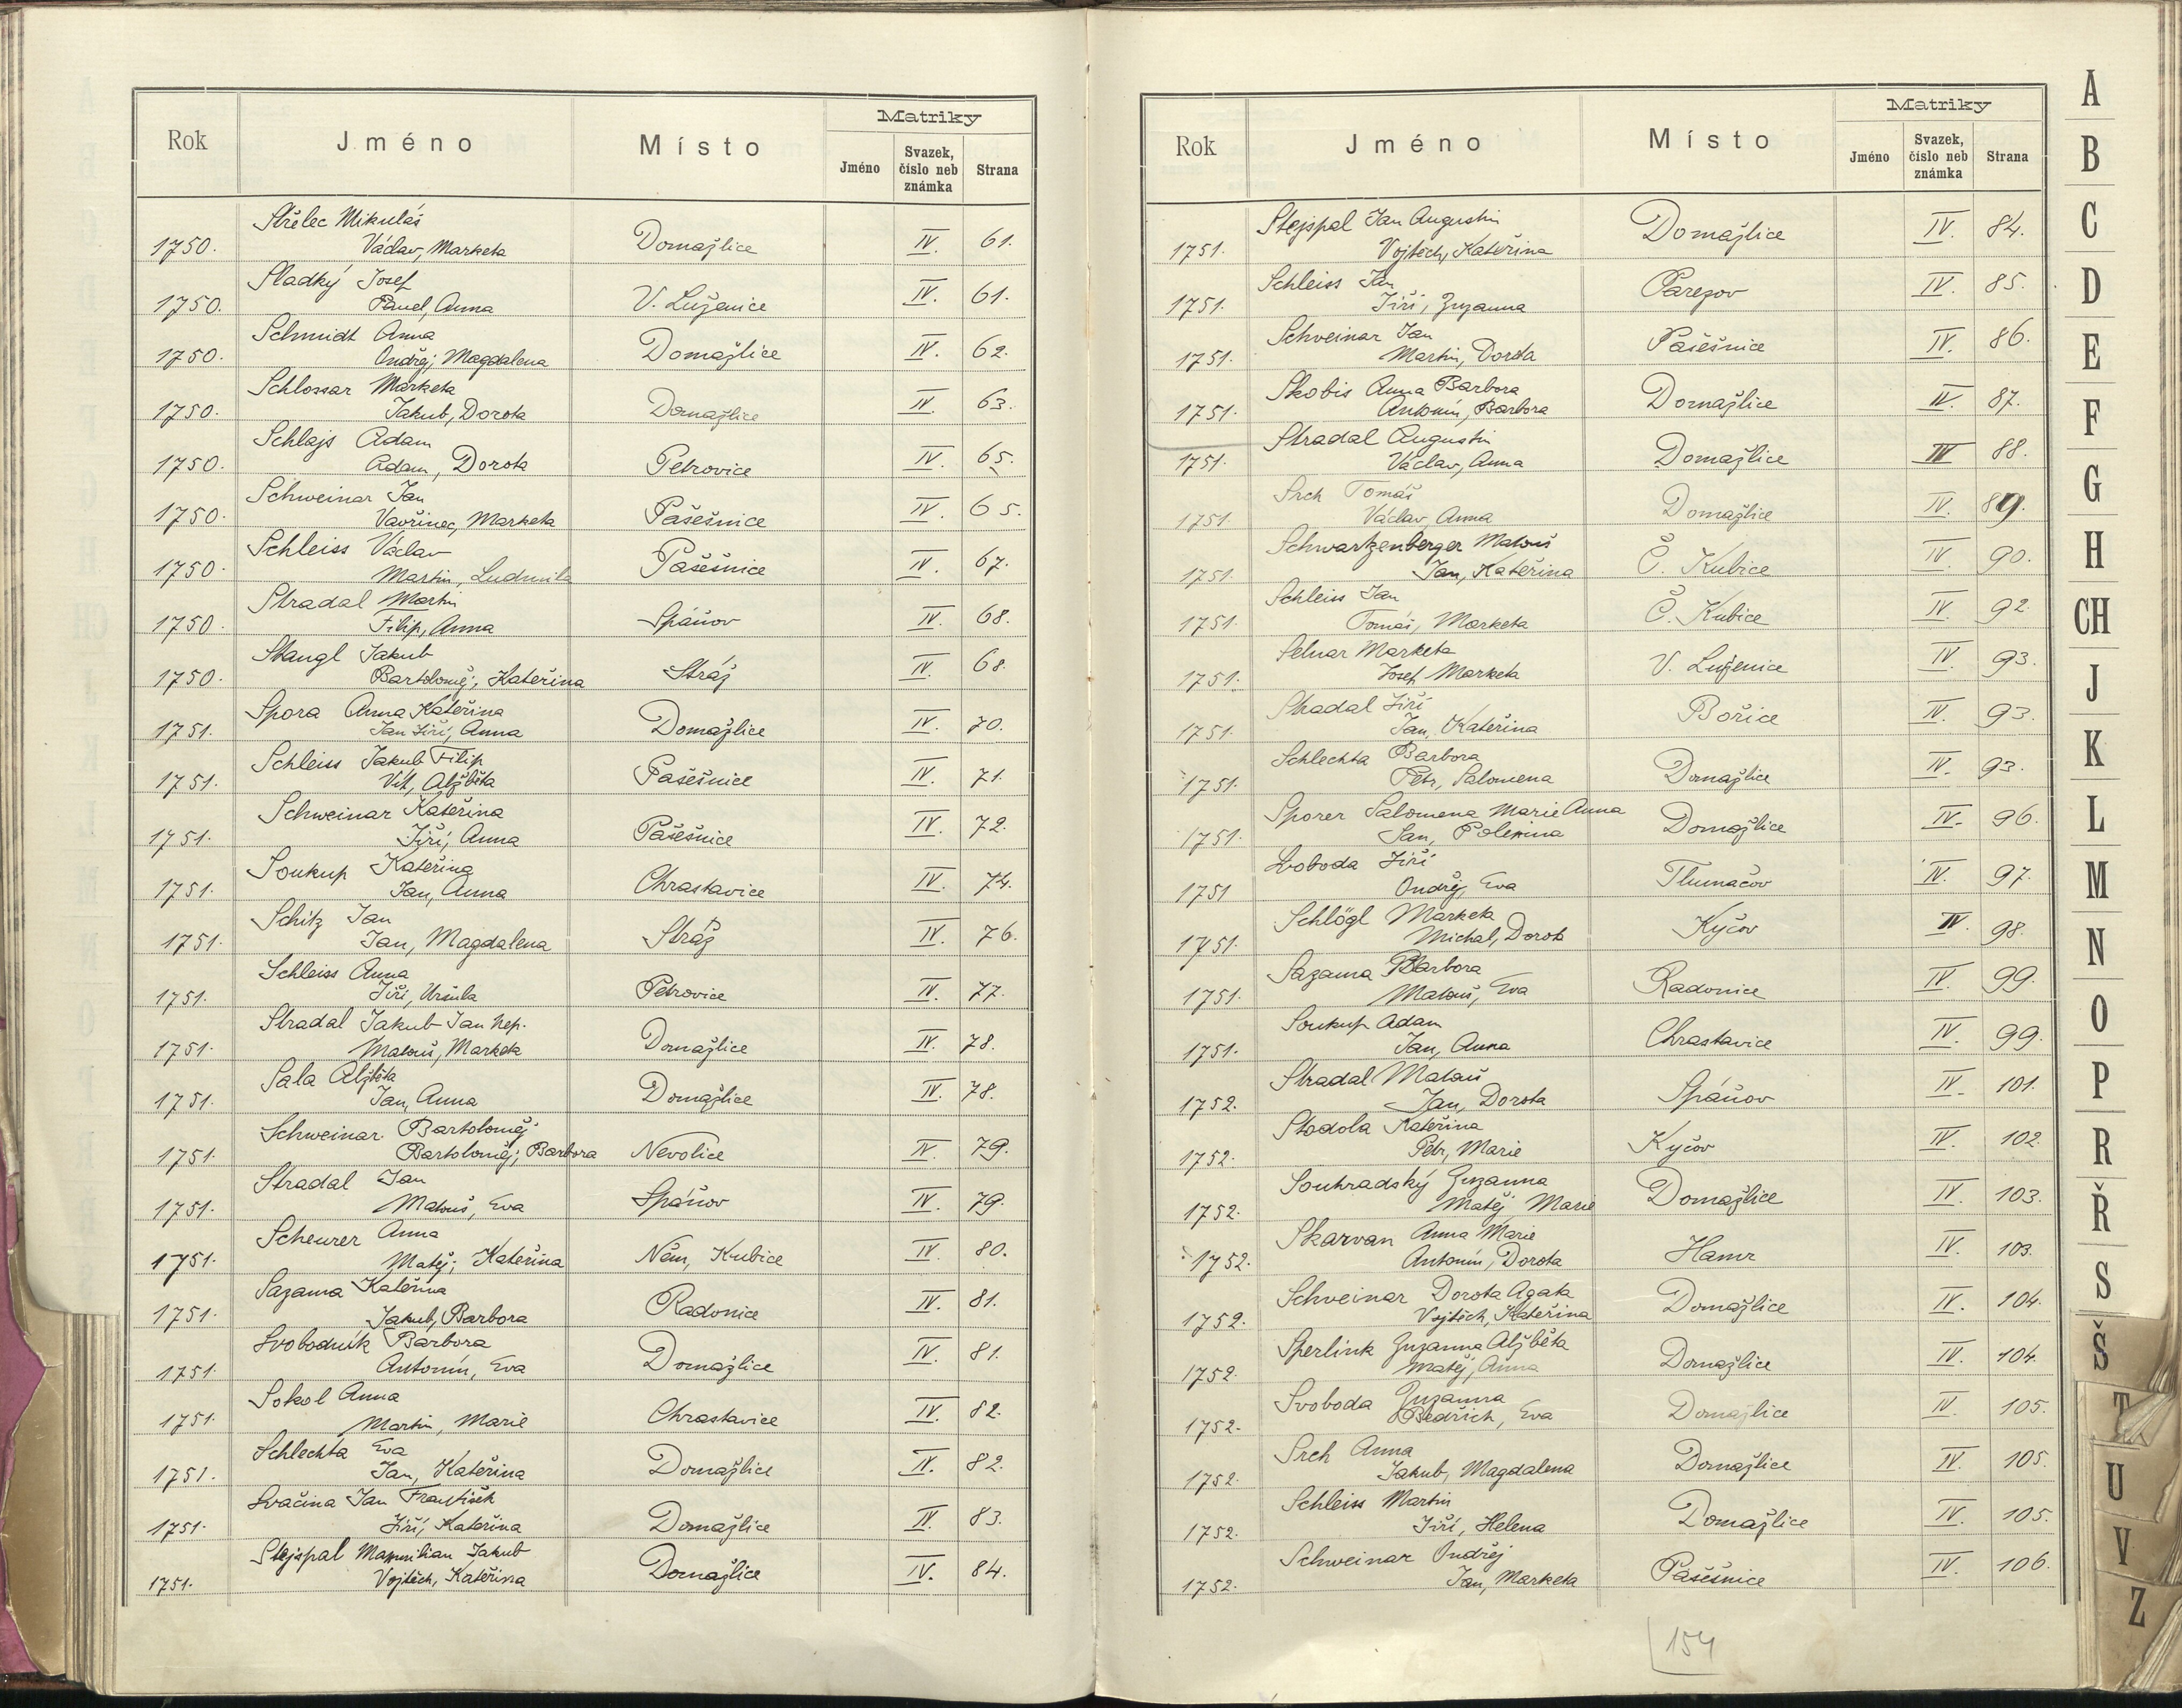 Matriky
Rok Jméno Místo Jméno Svazek, číslo neb známka Strana
Střelec Mikuláš
1750. Václav, Marketa Domažlice IV. 61.
Sladký Josef
1750. Pavel, Anna V. Luženice IV. 61.
Schmidt Anna
1750. Ondřej, Magdalena Domažlice IV. 62.
Schlossar Marketa
1750. Jakub, Dorota Domažlice IV. 63.
Schlajs Adam
1750. Adam, Dorota Petrovice IV. 65.
Schweinar Jan
1750. Vavřinec, Marketa Pašešnice IV. 65.
Schleiss Václav
1750. Martin, Ludmila Pašešnice IV. 67.
Stradal Martin
1750. Filip, Anna Spáňov IV. 68.
Stangl Jakub
1750. Bartoloměj, Kateřina Stráž IV. 68.
Spora Anna Kateřina
1751. Jan Jiří, Anna Domažlice IV. 70.
Schleiss Jakub Filip
1751. Vít, Alžběta Pašešnice IV. 71.
Schweinar Kateřina
1751. Jiří, Anna Pašešnice IV. 72.
Soukup Kateřina
1751. Jan, Anna Chrastavice IV. 74.
Schitz Jan
1751. Jan, Magdalena Stráž IV. 76.
Schleiss Anna
1751. Jiří, Uršula Petrovice IV. 77.
Stradal Jakub Jan Nep.
1751. Matouš, Marketa Domažlice IV. 78.
Sala Alžběta
1751. Jan, Anna Domažlice IV. 78.
Schweinar Bartoloměj
1751. Bartoloměj, Barbora Nevolice IV. 79.
Stradal Jan
1751. Matouš, Eva Spáňov IV. 79.
Scheurer Anna
1751. Matěj, Kateřina Něm. Kubice IV. 80.
Sazama Kateřina
1751. Jakub, Barbora Radonice IV. 81.
Svobodník Barbora
1751. Antonín, Eva Domažlice IV. 81.
Sokol Anna
1751. Martin, Marie Chrastavice IV. 82.
Schlechta Eva
1751. Jan, Kateřina Domažlice IV. 82.
Svačina Jan František
1751. Jiří, Kateřina Domažlice IV. 83.
Stejspal Maxmilian Jakub
1751. Vojtěch, Kateřina Domažlice IV. 84.
Matriky
Rok Jméno Místo Jméno Svazek, číslo neb známka Strana
Stejspal Jan Augustin
1751. Vojtěch, Kateřina Domažlice IV. 84.
Schleiss Jan
1751. Jiří, Zuzanna Pařezov IV. 85.
Schweinar Jan
1751. Martin, Dorota Pašešnice IV. 86.
Skobis Anna Barbora
1751. Antonín, Barbora Domažlice IV. 87.
Stradal Augustin
1751. Václav, Anna Domažlice IV 88.
Srch Tomáš
1751 Václav, Anna Domažlice IV. 89.
Schwartzenberger Matouš
1751. Jan, Kateřina Č. Kubice IV. 90.
Schleiss Jan
1751. Tomáš, Marketa Č. Kubice IV. 92.
Selnar Marketa
1751. Josef, Marketa V. Luženice IV. 93.
Stradal Jiří
1751. Jan, Kateřina Bořice IV. 93.
Schlechta Barbora
1751. Petr, Salomena Domažlice IV. 93.
Sporer Salomena Marie Anna
1751. Jan, Polexina Domažlice IV. 96.
Svoboda Jiří
1751 Ondřej, Eva Tlumačov IV. 97.
Schlögl Marketa
1751. Michal, Dorota Kyčov IV. 98.
Sazama Barbora
1751. Matouš, Eva Radonice IV. 99.
Soukup Adam
1751. Jan, Anna Chrastavice IV. 99.
Stradal Matouš
1752. Jan, Dorota Spáňov IV. 101.
Stodola Kateřina
1752. Petr, Marie Kyčov IV. 102.
Souhradský Zuzanna
1752. Matěj Marie Domažlice IV. 103.
Skarvan Anna Marie
1752. Antonín, Dorota Hamr IV. 103.
Schveinar Dorota Agata
1752. Vojtěch, Kateřina Domažlice IV. 104.
Sperlink Zuzanna Alžběta
1752. Matěj, Anna Domažlice IV. 104.
Svoboda Zuzanna
1752. Bedřich, Eva Domažlice IV. 105.
Srch Anna
1752. Jakub, Magdalena Domažlice IV. 105.
Schleiss Martin
1752. Jiří, Helena Domažlice IV. 105.
Schweinar Ondřej
1752. Jan, Marketa Pašešnice IV. 106.
154
A
B
C
D
E
F
G
H
CH
J
K
L
M
N
O
P
R
Ř
S
Š
T
U
V
Z